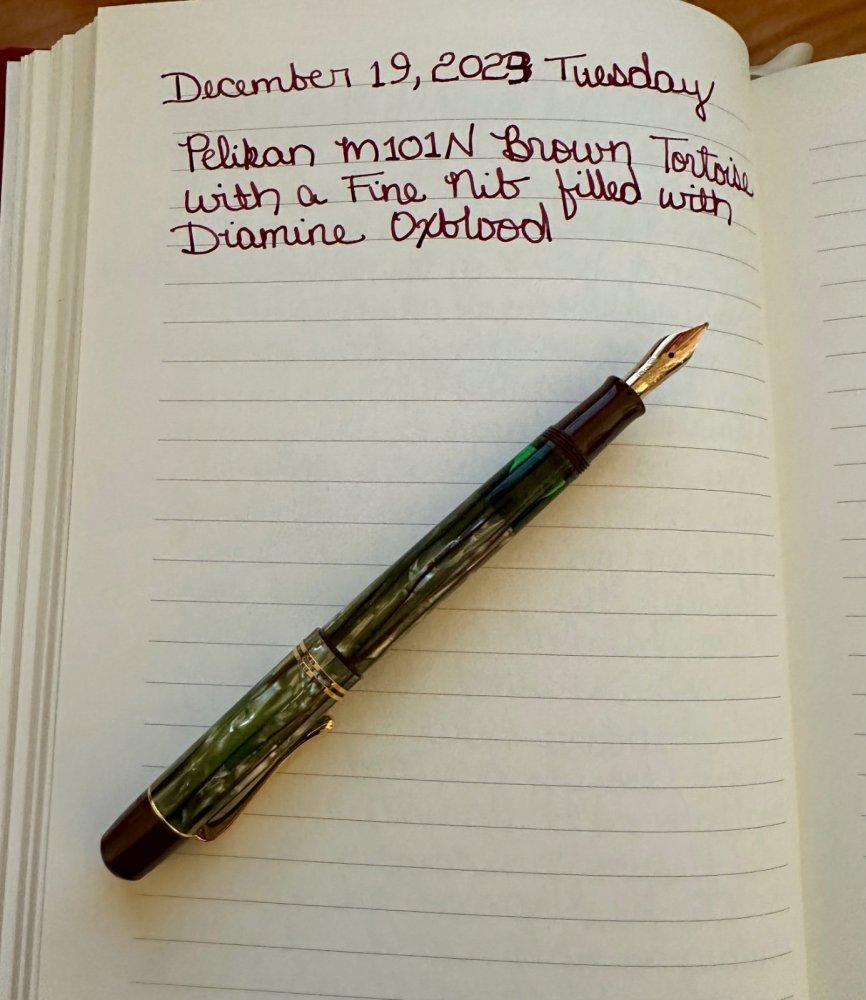 December 19, 2023 Tuesday
Pelikan M101N Brown Tortoise
with a Fine Nib filled with
Diamine Oxblood